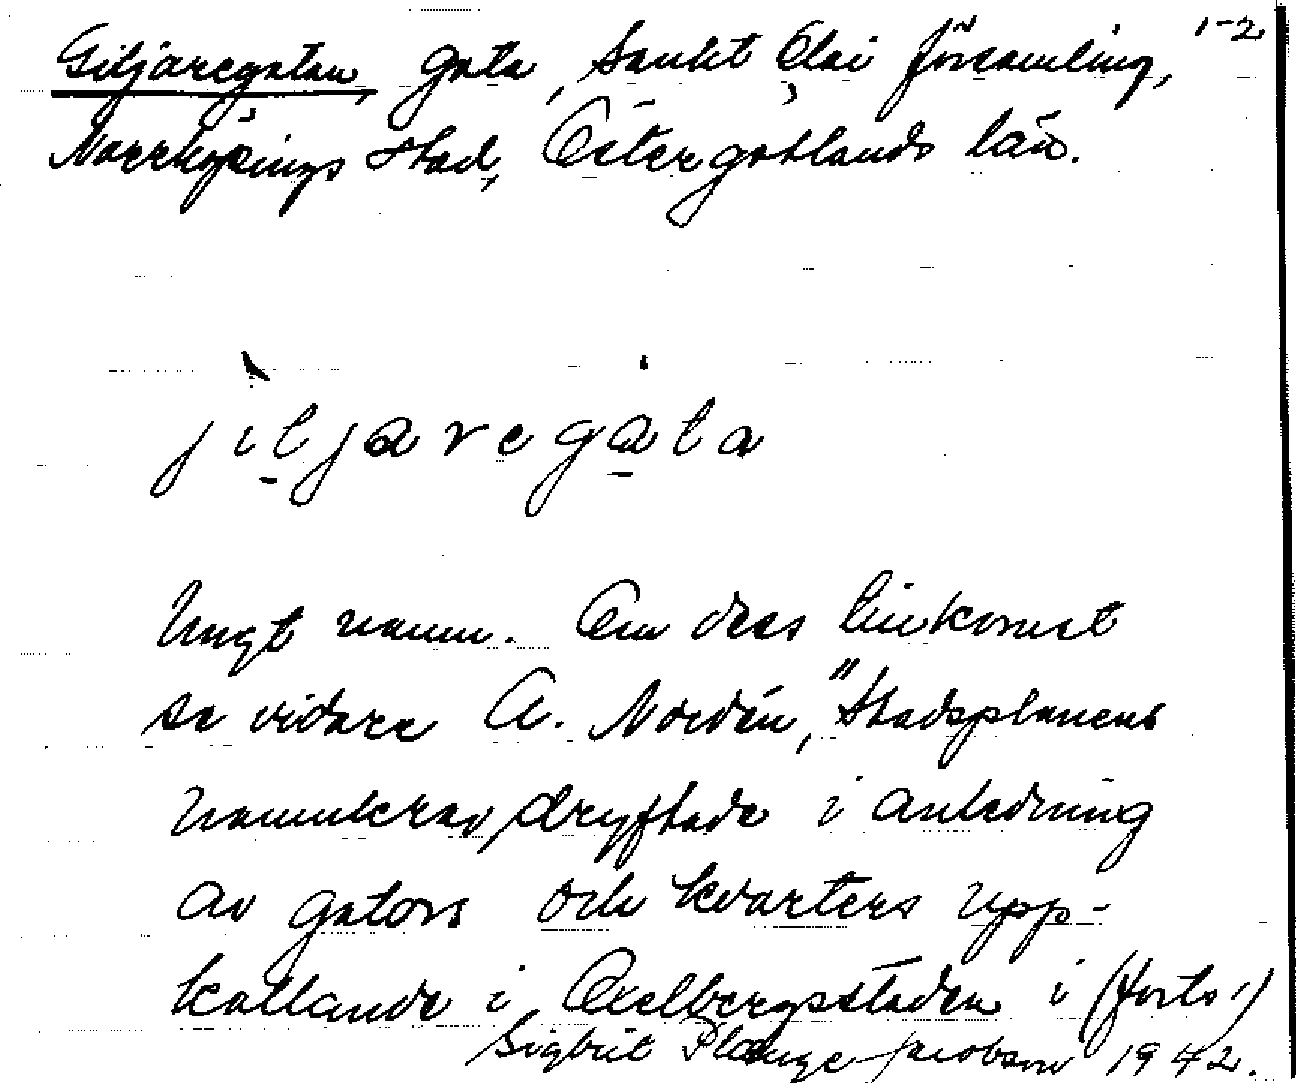 1-2
Giljaregatan, gata, Sankt Olai församling,
Norrköpings stad, Östergötlands län.
jiljaregata
Ungt namn. Om dess tillkomst
se vidare A. Nordén, "Stadsplanens
namnkrav, dryftade i anledning
av gators och kvarters upp-
kallande i Oxelbergsstaden i (forts.)
Sigbrit Plænge Jacobson 1942.